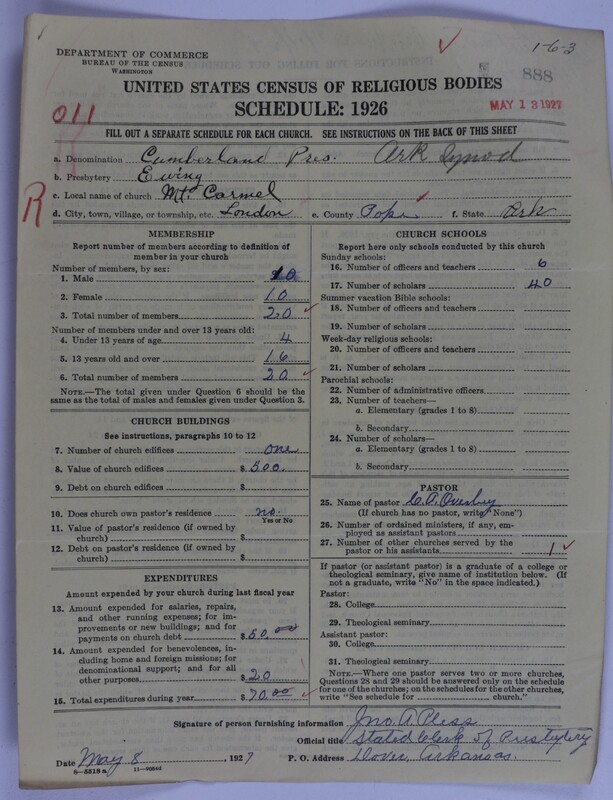 1-6-3
DEPARTMENT OF COMMERCE
BUREAU OF THE CENSUS
WASHINGTON
888
UNITED STATES CENSUS OF RELIGIOUS BODIES
SCHEDULE: 1926
MAY 13 1927
011
FILL OUT A SEPARATE SCHEDULE FOR EACH CHURCH. SEE INSTRUCTIONS ON THE BACK OF THIS SHEET
a. Denomination Cumberland Pres. Ark Synod
b. Presbytery Ewing
R
c. Local name of church Mt. Carmel
d. City, town, village, or township, etc. London e. County Pope f. State Ark
MEMBERSHIP
Report number of members according to definition of
member in your church
Number of members, by sex:
1. Male 10
2. Female 10
3. Total number of members 20
Number of members under and over 13 years old:
4. Under 13 years of age 4
5. 13 years old and over 16
6. Total number of members 20
NOTE.—The total given under Question 6 should be the
same as the total of males and females given under Question 3.
CHURCH BUILDINGS
See instructions, paragraphs 10 to 12
7. Number of church edifices one
8. Value of church edifices $ 500.
9. Debt on church edifices $
10. Does church own pastor's residence no.
Yes or No
11. Value of pastor's residence (if owned by
church) $
12. Debt on pastor's residence (if owned by
church) $
EXPENDITURES
Amount expended by your church during last fiscal year
13. Amount expended for salaries, repairs,
and other running expenses; for im-
provements or new buildings; and for
payments on church debt $ 50.00
14. Amount expended for benevolences, in-
cluding home and foreign missions; for
denominational support; and for all
other purposes $ 20
15. Total expenditures during year $ 70.00
CHURCH SCHOOLS
Report here only schools conducted by this church
Sunday schools:
16. Number of officers and teachers 6
17. Number of scholars 40
Summer vacation Bible schools:
18. Number of officers and teachers
19. Number of scholars
Week-day religious schools:
20. Number of officers and teachers
21. Number of scholars
Parochial schools:
22. Number of administrative officers
23. Number of teachers—
a. Elementary (grades 1 to 8)
b. Secondary
24. Number of scholars—
a. Elementary (grades 1 to 8)
b. Secondary
PASTOR
25. Name of pastor C. A. Overby
(If church has no pastor, write "None")
26. Number of ordained ministers, if any, em-
ployed as assistant pastors
27. Number of other churches served by the
pastor or his assistants 1
If pastor (or assistant pastor) is a graduate of a college or
theological seminary, give name of institution below. (If
not a graduate, write "No" in the space indicated.)
Pastor:
28. College
29. Theological seminary
Assistant pastor:
30. College
31. Theological seminary
NOTE.—Where one pastor serves two or more churches,
Questions 28 and 29 should be answered only on the schedule
for one of the churches; on the schedules for the other churches,
write "See schedule for church."
Signature of person furnishing information Jno. A. Pless
Official title Stated Clerk of Presbytery
Date May 8, 1927 P. O. Address Dover, Arkansas.